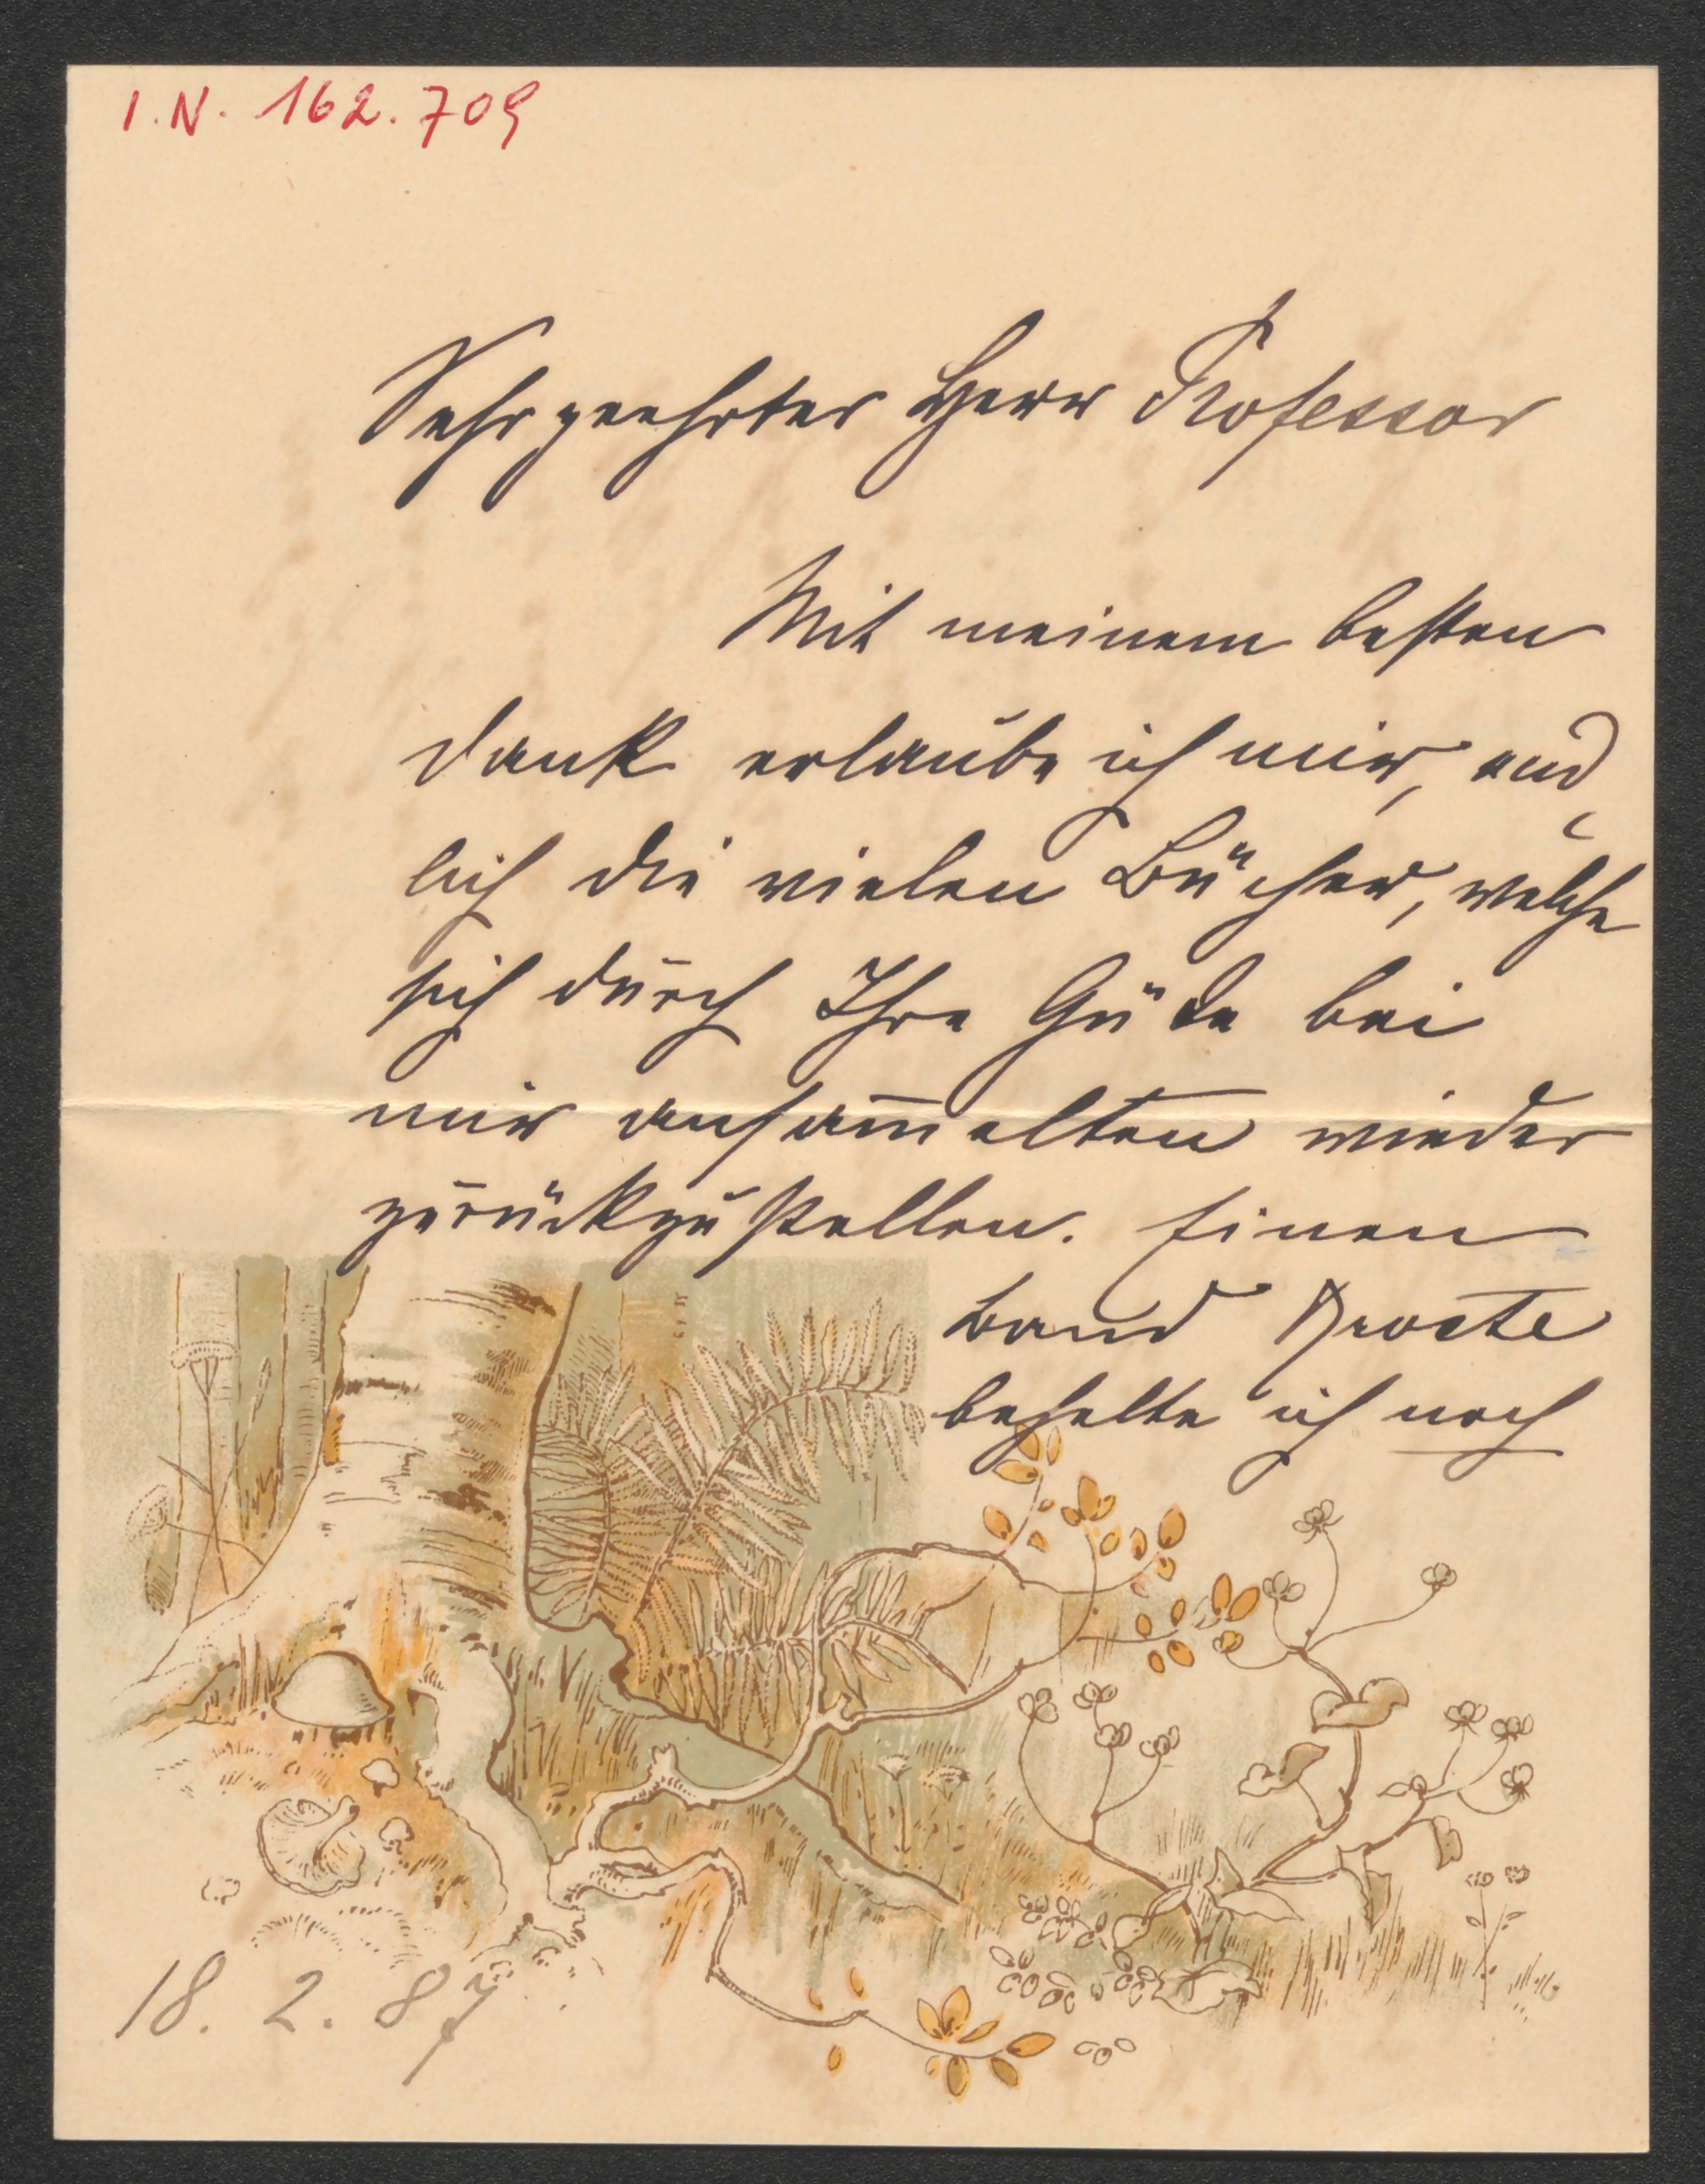 I.N. 162.709
Sehr geehrter Herr Professor
Mit meinem besten
Dank erlaube ich mir, end
lich die vielen Bücher, welche
sich durch Ihre Güte bei
mir ansam̅elten wieder
zurückzustellen. Einen
Band Droste
behalte ich noch
18. 2. 87